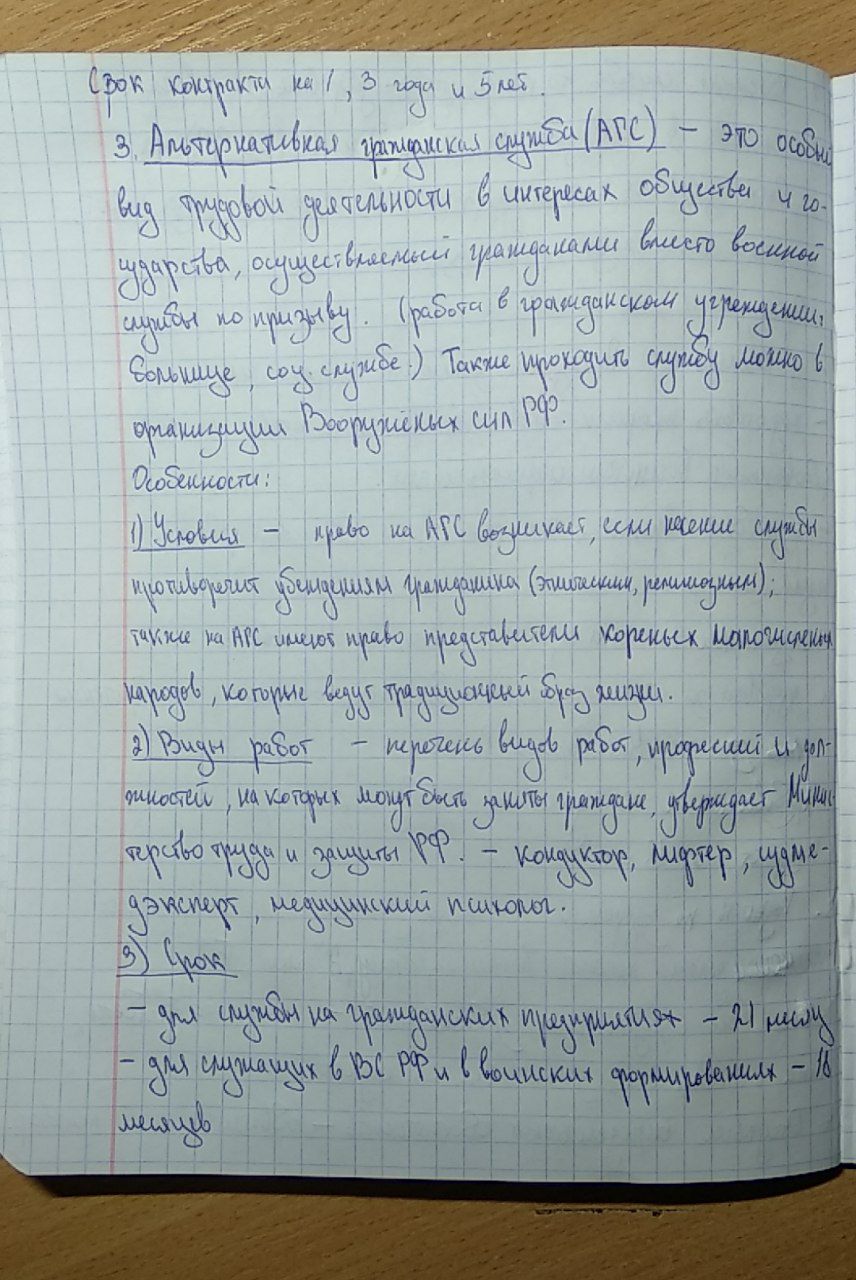 Срок контракта на 1, 3 года и 5 лет.
3. Альтернативная гражданская служба (АГС) — это особый
вид трудовой деятельности в интересах общества и го-
сударства, осуществляемый гражданами вместо военной
службы по призыву. (работа в гражданском учреждении,
больнице, соц. службе.) Также проходить службу можно в
организации Вооруженых сил РФ.
Особенности:
1) Условия — право на АГС возникает, если несение службы
противоречит убеждениям гражданина (этническим, религиозным);
также на АГС имеют право представители кореных малочисленых
народов, которые ведут традиционный образ жизни.
2) Виды работ — перечень видов работ, професий и дол-
жностей, на которых могут быть заняты граждане, утверждает Минис-
терство труда и защиты РФ. — кондуктор, лифтер, судме-
дэксперт, медицинский психолог.
3) Срок
— для службы на гражданских предприятиях — 21 месяц
— для служащих в ВС РФ и в воинских формированиях — 18
месяцев